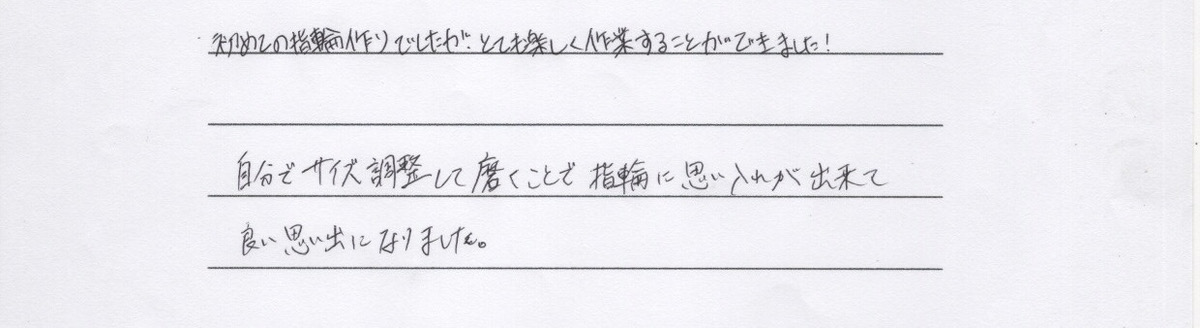 初めての指輪作りでしたが、とても楽しく作業することができました!
自分でサイズ調整して磨くことで指輪に思い入れが出来て
良い思い出になりました。